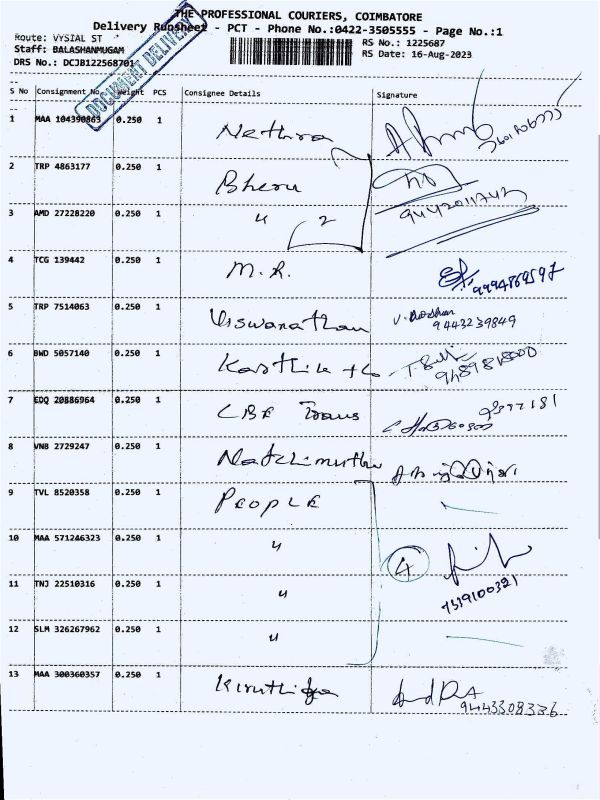 THE PROFESSIONAL COURIERS, COIMBATORE
Delivery Runsheet - PCT - Phone No.:0422-3505555 - Page No.:1
Route: VYSIAL ST
RS No.: 1225687
Staff: BALASHANMUGAM
RS Date: 16-Aug-2023
DRS No.: DCJB122568701
DOCUMENT DELIVERY
S No Consignment No. Weight PCS Consignee Details Signature
1 MAA 104390863 0.250 1 Nethra
2 TRP 4863177 0.250 1 Bheru
9442011742
3 AMD 27228220 0.250 1 " 2
4 TCG 139442 0.250 1 M.R. 9994869597
5 TRP 7514063 0.250 1 Viswanathan
9443239849
6 BWD 5057140 0.250 1 Karthik + Co
7 EDQ 20886964 0.250 1 CBE Trans
8 VNB 2729247 0.250 1 Natchimuthu
9 TVL 8520358 0.250 1 PEOPLE
10 MAA 571246323 0.250 1 " 4
11 TNJ 22510316 0.250 1 " 7339100321
12 SLM 326267962 0.250 1 "
13 MAA 300360357 0.250 1 Kiruthika
9443308336